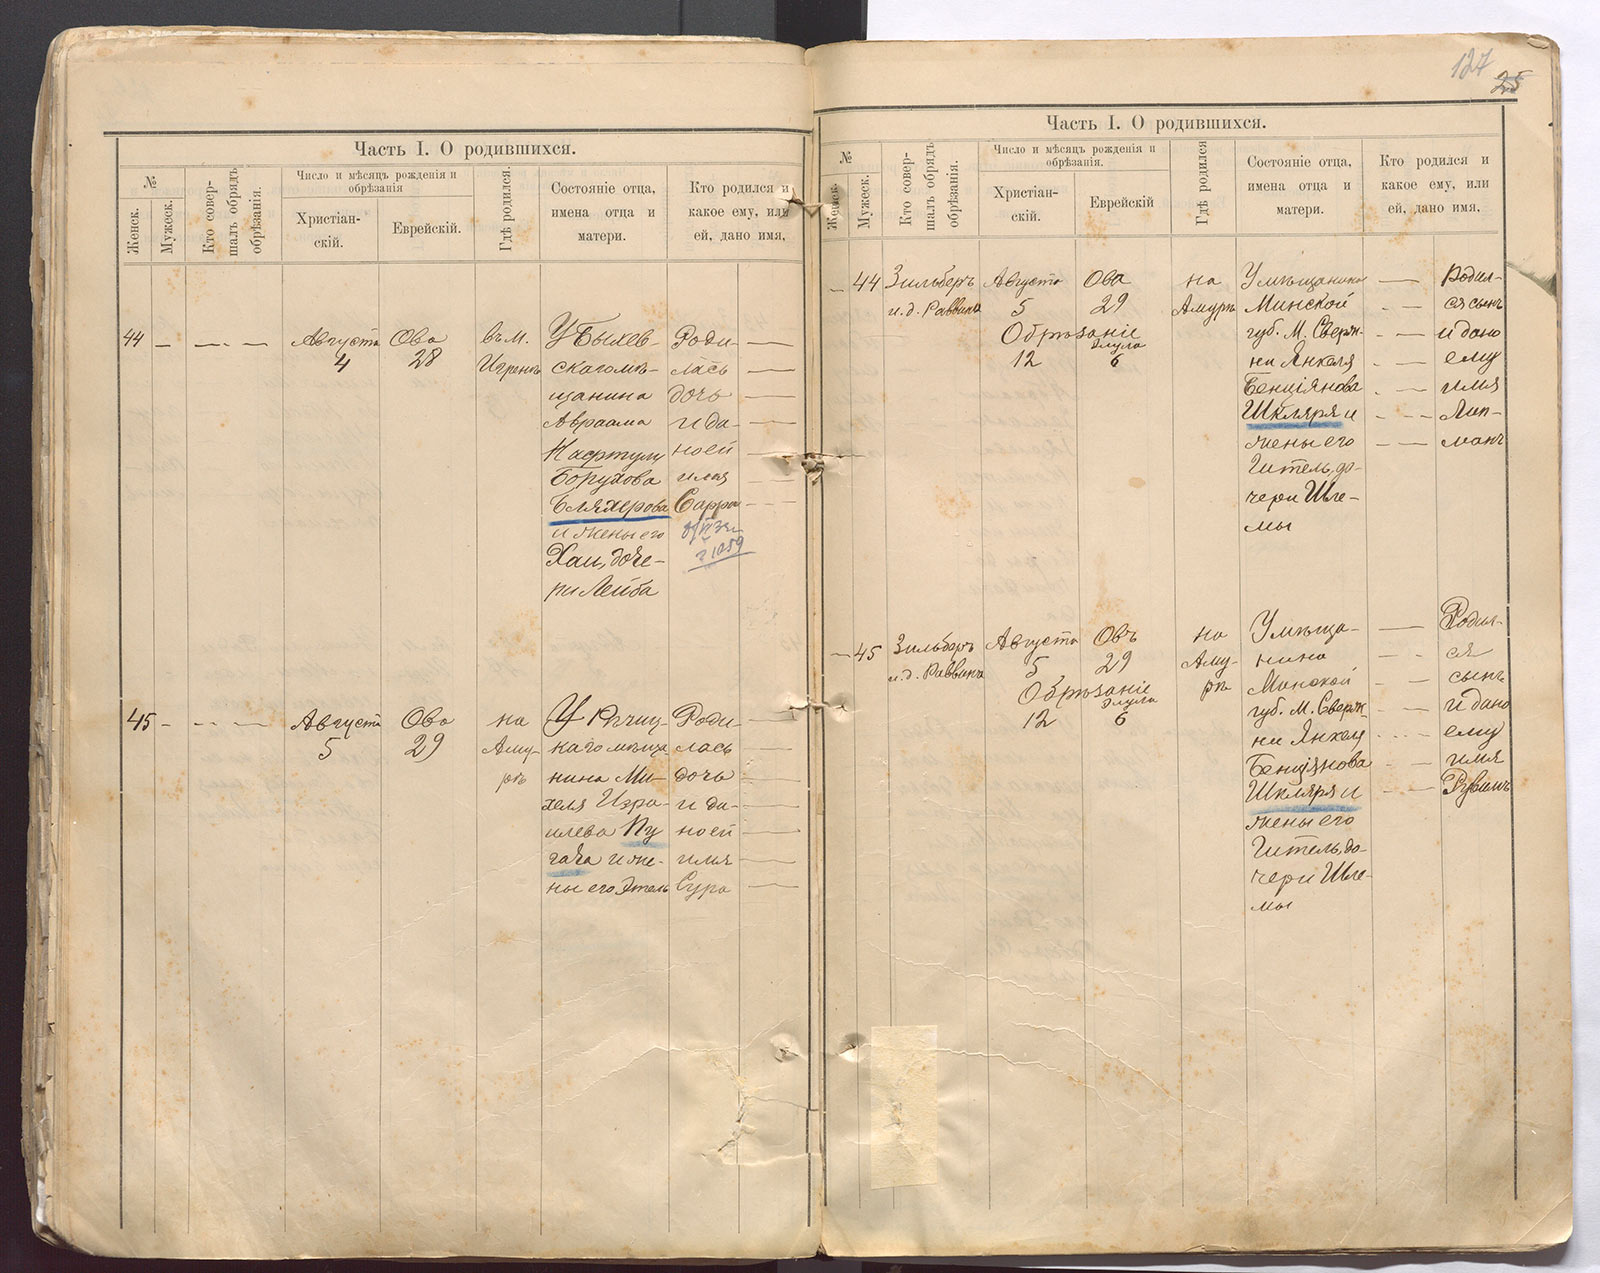 Часть I. О родившихся.
№
Женск.
Мужеск.
Кто совер-
шалъ обрядъ
обрѣзанія.
Число и мѣсяцъ рожденія и
обрѣзанія
Христіан-
скій.
Еврейскій.
Гдѣ родился.
Состояніе отца,
имена отца и
матери.
Кто родился и
какое ему, или
ей, дано имя,
44
Августа
4
Ова
28
въ м.
Игрень
У Быхев-
скагомѣ-
щанина
Авраама
Нафтулу
Борухова
Бляхерова
и жены его
Хаи, доче-
ри Лейба
Роди-
лась
дочь
и да-
ноей
имя
Сарра
45
Августа
5
Ова
29
на
Аму-
рѣ
У
нагомѣща
нина Ми-
хеля Изра-
илева Пу
гача и же-
ны его Этель
Роди
лась
дочь
и да-
ноей
имя
Сура
127
25
Часть I. О родившихся.
№
Женск.
Мужеск.
Кто совер-
шалъ обрядъ
обрѣзанія.
Число и мѣсяцъ рожденія и
обрѣзанія.
Христіан-
скій.
Еврейскій
Гдѣ родился
Состояніе отца,
имена отца и
матери.
Кто родился и
какое ему, или
ей, дано имя,
44
Зильберъ
и. д. Раввина
Августа
5
Ова
29
Обрѣзаніе
12
Элула
6
на
Амурѣ
У мѣщанина
Минской
губ. М. Сверж-
ни Янкеля
Бенціянова
Шкляря и
жены его
Гитель, до-
чери Шле-
мы
Родил-
ся сынъ
и дано
ему
имя
Лип-
манъ
45
Зильберъ
и. д. Раввина
Августа
5
Овъ
29
Обрѣзаніе
12
Элула
6
на
Аму-
рѣ
У мѣща-
нина
Минской
губ. М. Сверж-
ни Янкеля
Бенціянова
Шкляря и
жены его
Гитель, до-
чери Шле-
мы
Родил-
ся
сынъ
и дано
ему
имя
Рувимъ